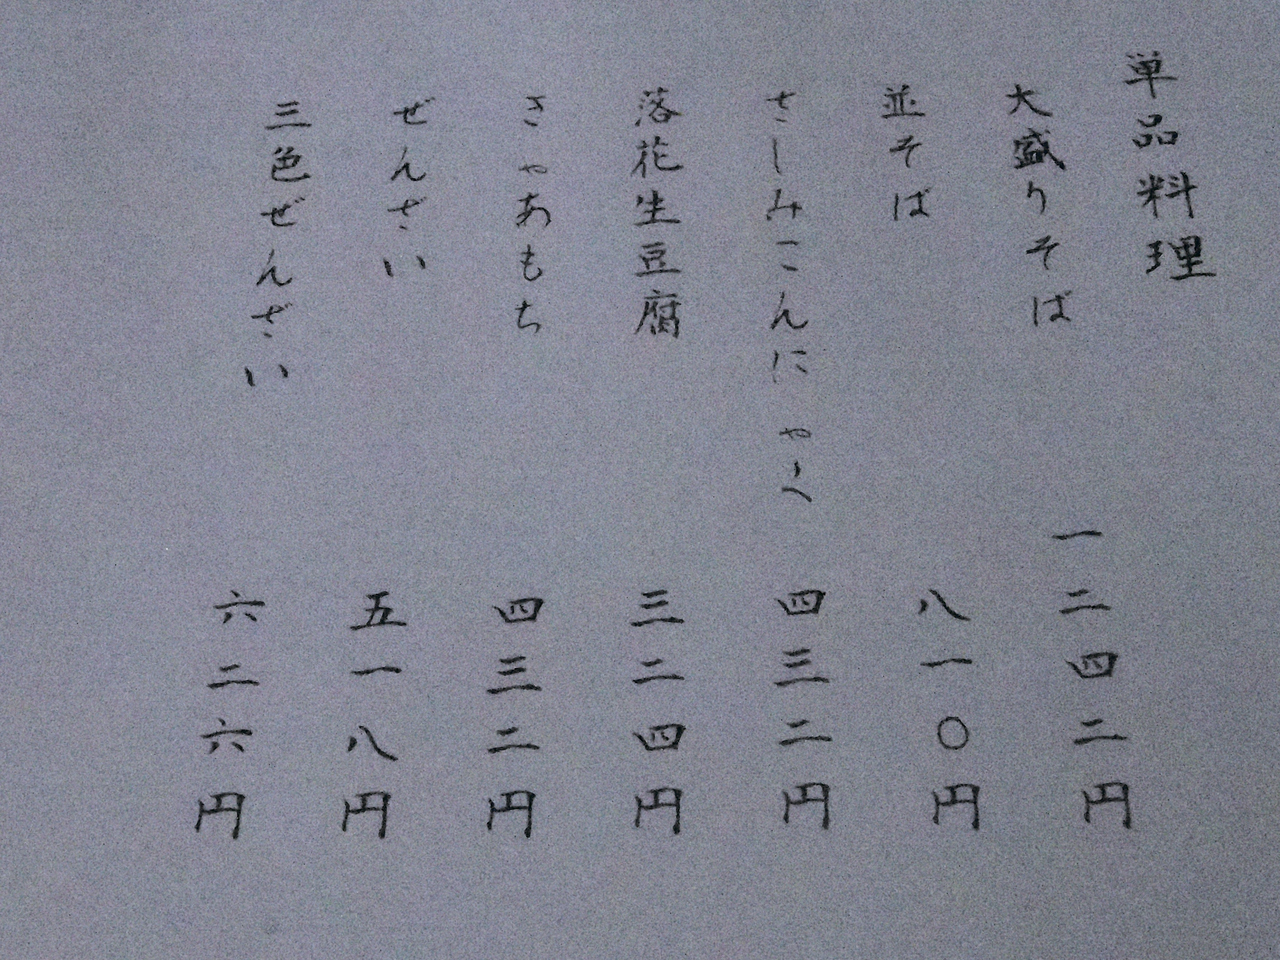 単品料理
大盛りそば 一二四二円
並そば 八一〇円
さしみこんにゃく 四三二円
落花生豆腐 三二四円
きゃあもち 四三二円
ぜんざい 五一八円
三色ぜんざい 六二六円